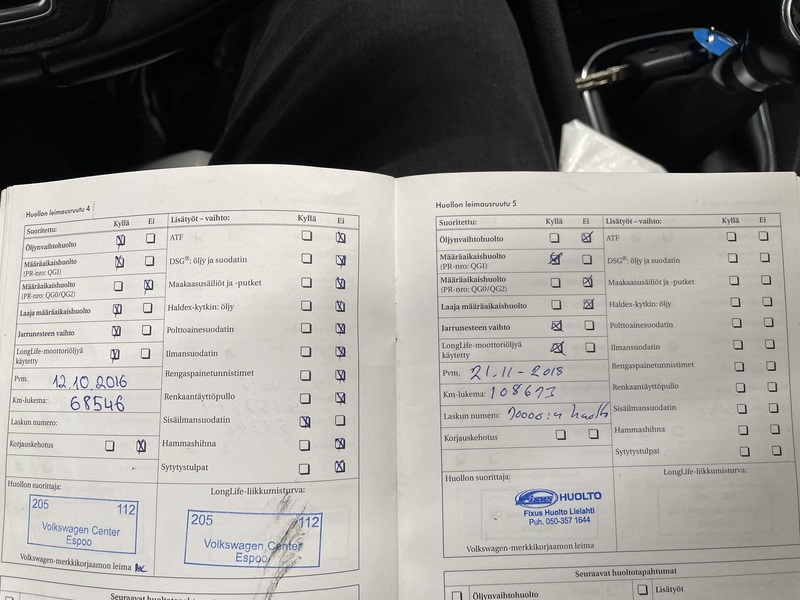 Huollon leimausruutu 4
Suoritettu: Kyllä Ei
Öljynvaihtohuolto
Määräaikaishuolto
(PR-nro: QGI)
Määräaikaishuolto
(PR-nro: QG0/QG2)
Laaja määräaikaishuolto
Jarrunesteen vaihto
LongLife-moottoriöljyä
käytetty
Pvm. 12.10.2016
Km-lukema: 68546
Laskun numero:
Korjauskehotus
Huollon suorittaja:
205 112
Volkswagen Center
Espoo
Volkswagen-merkkikorjaamon leima
Lisätyöt – vaihto: Kyllä Ei
ATF
DSG®: öljy ja suodatin
Maakaasusäiliöt ja -putket
Haldex-kytkin: öljy
Polttoainesuodatin
Ilmansuodatin
Rengaspainetunnistimet
Renkaantäyttöpullo
Sisäilmansuodatin
Hammashihna
Sytytystulpat
LongLife-liikkumisturva:
205 112
Volkswagen Center
Espoo
Seuraavat huoltotapahtumat
Huollon leimausruutu 5
Suoritettu: Kyllä Ei
Öljynvaihtohuolto
Määräaikaishuolto
(PR-nro: QGI)
Määräaikaishuolto
(PR-nro: QG0/QG2)
Laaja määräaikaishuolto
Jarrunesteen vaihto
LongLife-moottoriöljyä
käytetty
Pvm. 21.11-2018
Km-lukema: 108673
Laskun numero:
Korjauskehotus
Huollon suorittaja:
Fixus HUOLTO
Fixus Huolto Lielahti
Puh. 050-357 1644
Volkswagen-merkkikorjaamon leima
Lisätyöt – vaihto: Kyllä Ei
ATF
DSG®: öljy ja suodatin
Maakaasusäiliöt ja -putket
Haldex-kytkin: öljy
Polttoainesuodatin
Ilmansuodatin
Rengaspainetunnistimet
Renkaantäyttöpullo
Sisäilmansuodatin
Hammashihna
Sytytystulpat
LongLife-liikkumisturva:
Seuraavat huoltotapahtumat
Öljynvaihtohuolto Lisätyöt